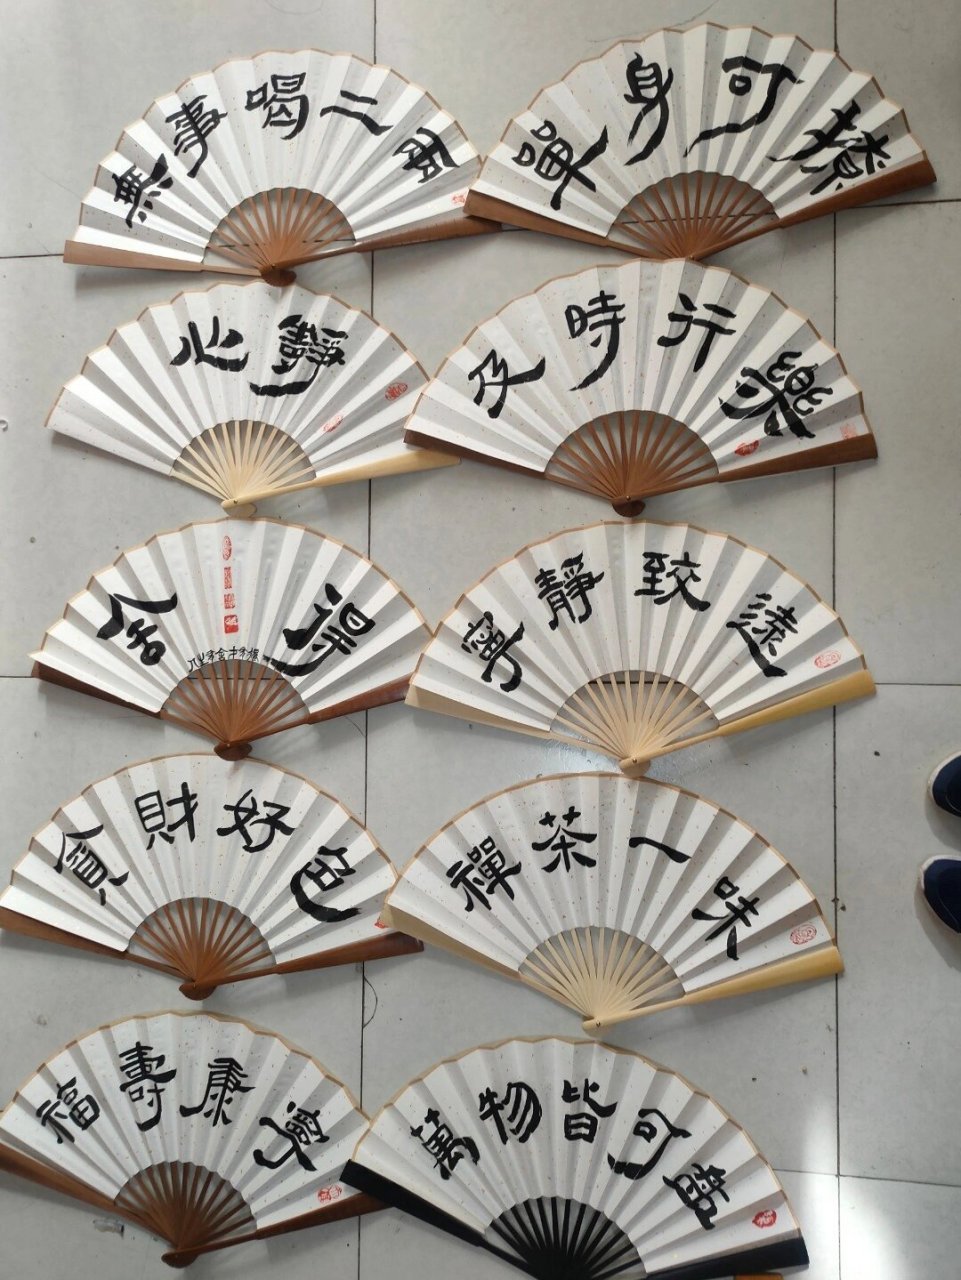 無事喝二兩
單身可撩
心靜
及時行樂
舍得
寧靜致遠
貪財好色
禪茶一味
福壽康寧
萬物皆可盤